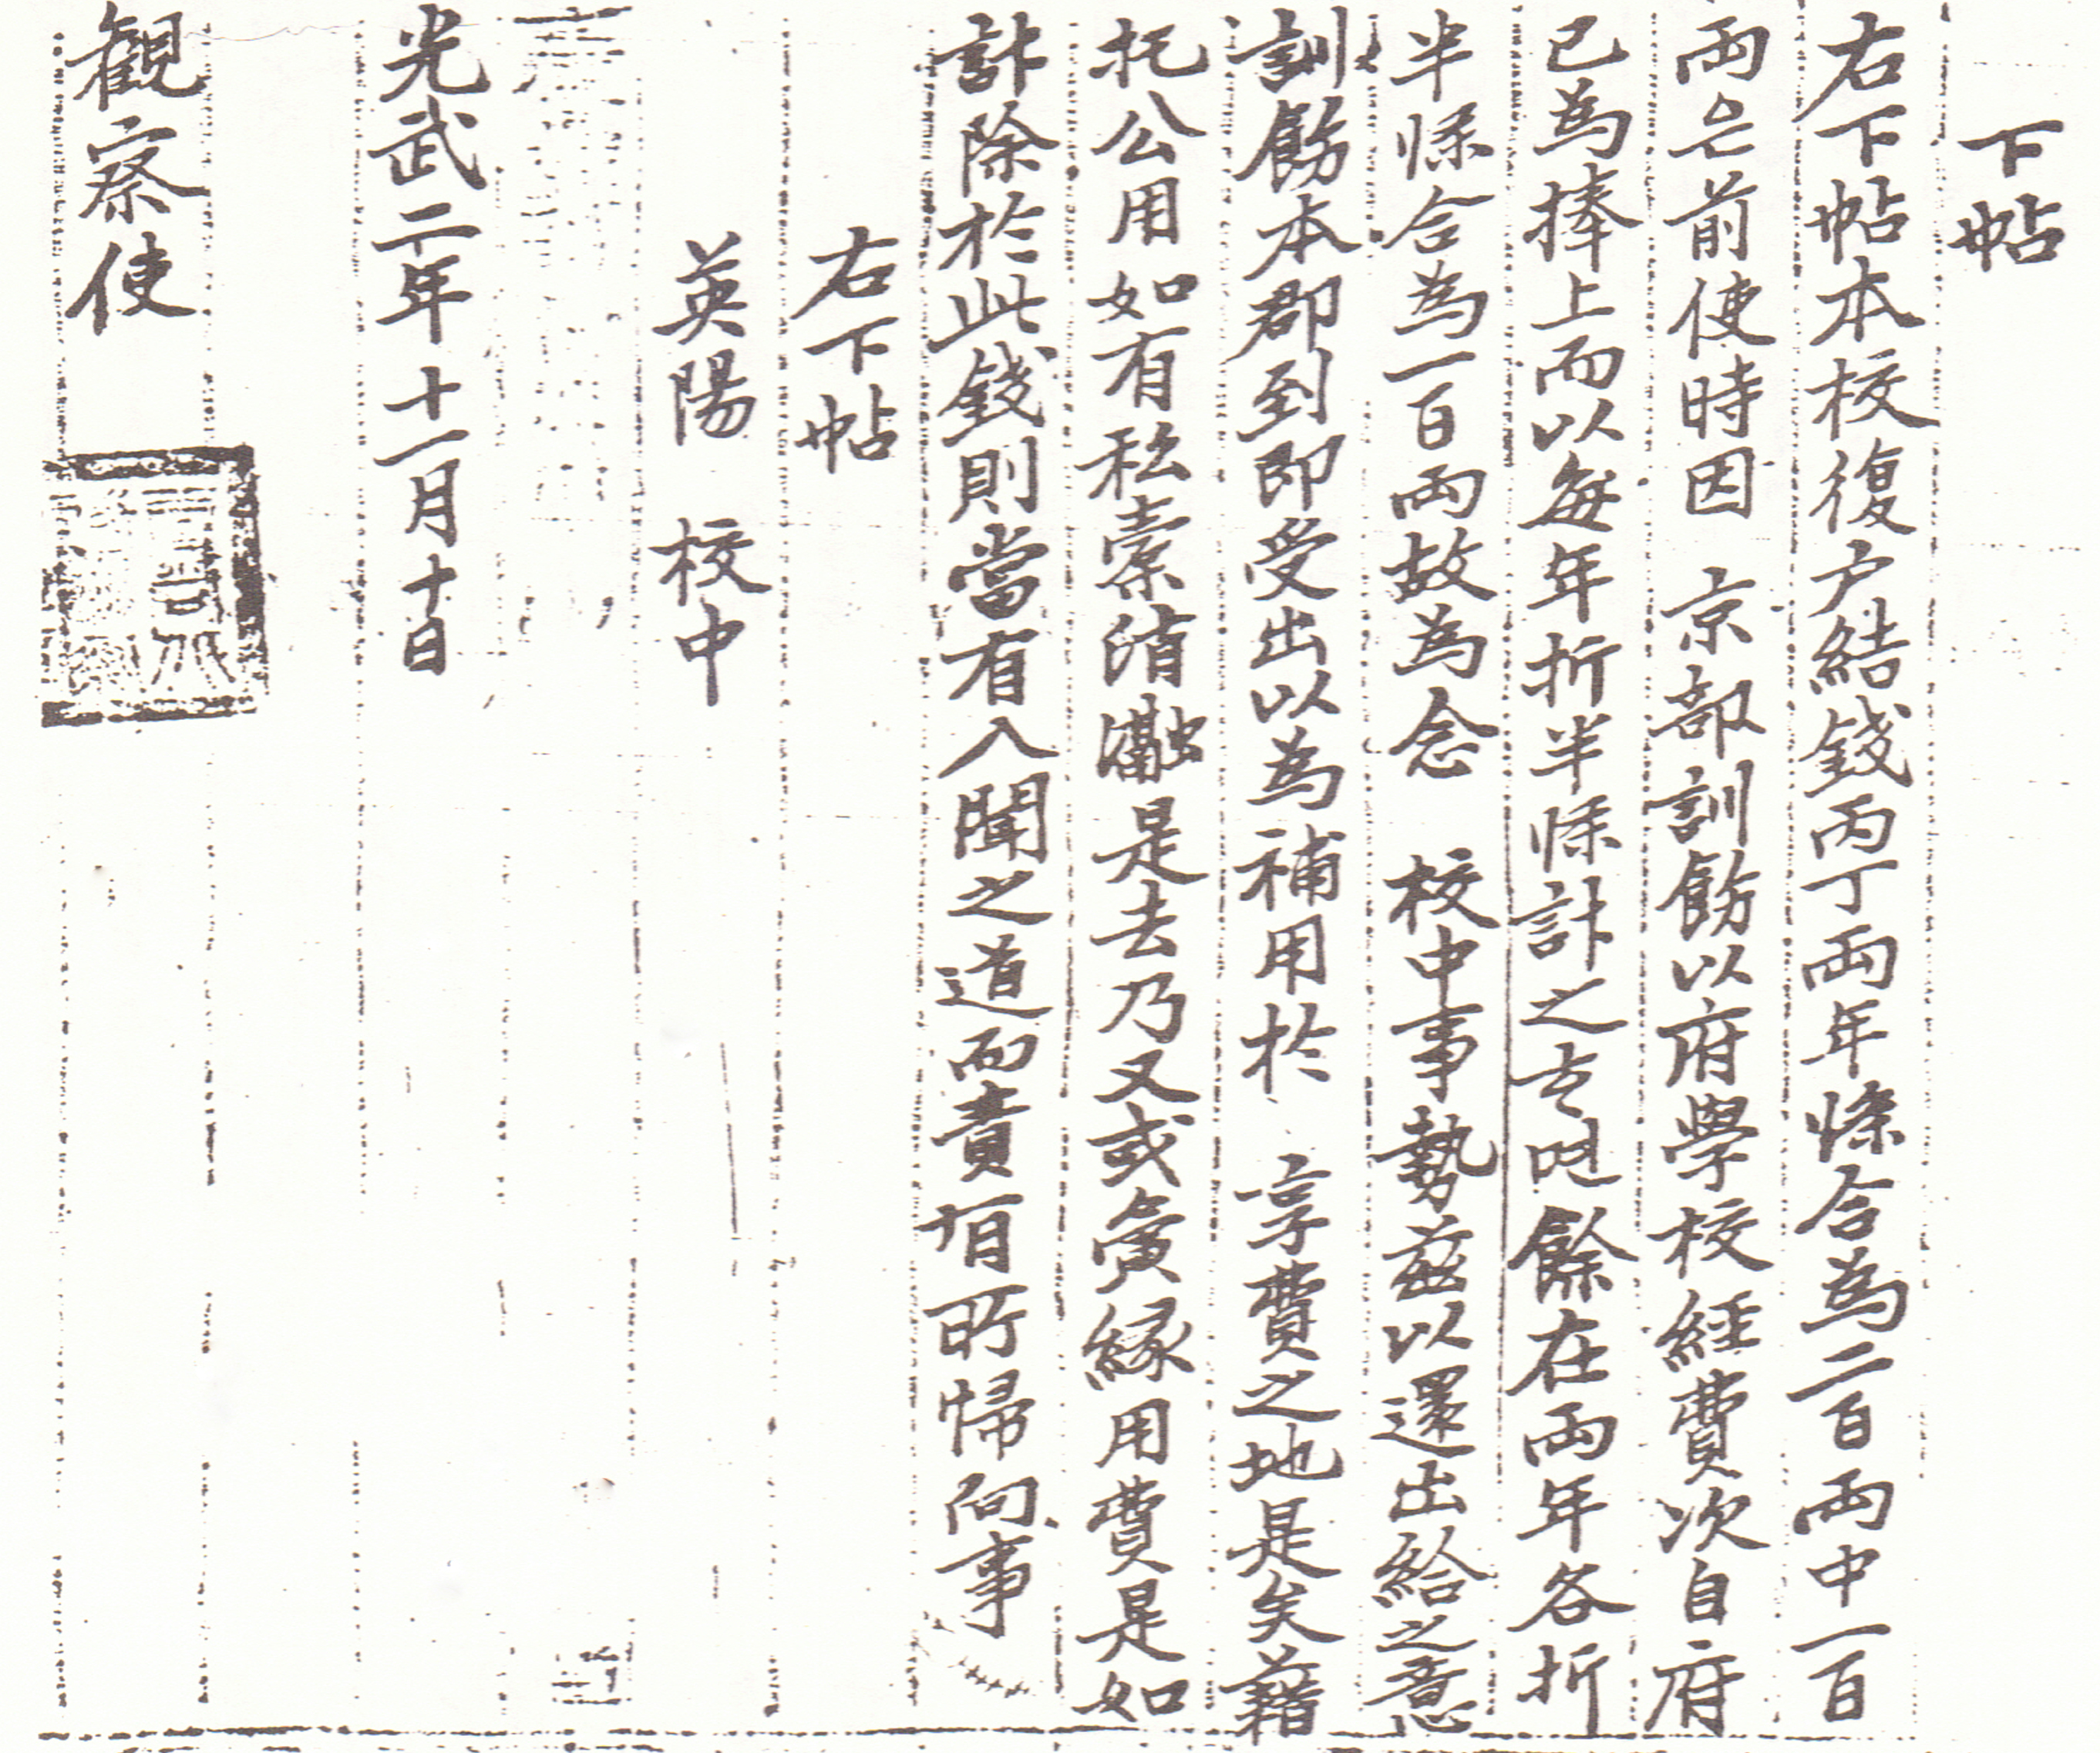 下帖
右下帖本校復戶結錢丙丁兩年條合為二百兩中一百
兩段前使時因 京部訓飭以府學校經費次自府
已為捧上而以每年折半條計之是去 餘在兩年各折
半條合為一百兩故為念 校中事勢玆以還出給之意
訓飭本郡到即受出以為補用於 享費之地是矣藉
托公用如有私橐消瀜是去乃又或夤緣用費是如
計除於此錢則當有入聞之道而責有所歸向事
右下帖
英陽 校中
光武二年十一月十日
觀察使